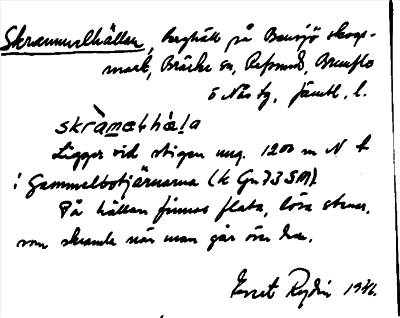 Skrammelhällan, berghäll på Bensjö skogs-
mark, Bräcke sn, Refsund, Brunflo
o Näs tg, Jämtl. l.
skràmelhä̀la
Ligger vid stigen ung. 1200 m N t
i Gammelbotjärnarna (k Gr. 73 SM).
På hällan finnas flata, lösa stenar,
som skramla när man går över den.
Ernst Rydin 1946.